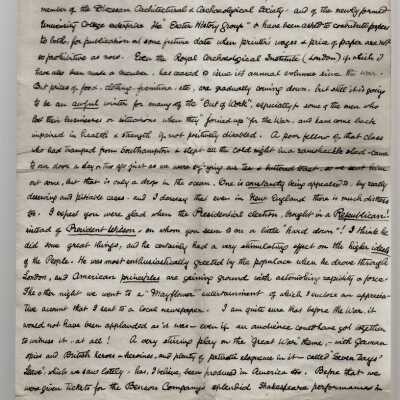 member of the Diocesan Architectural & Archaeological Society - and of the newly formed
University College enterprise the "Exeter History Group" - & have been asked to contribute papers
to both, for publication at some future date when printers' wages & price of paper are not
so prohibitive as now. Even the Royal Archaeological Institute (London) of which I
have also been made a member, has ceased to issue its annual volumes since the war.
But prices of food, clothing, furniture, etc, are gradually coming down, but still it is going
to be an awful winter for many of the "Out of Work", especially for some of the men who
lost their businesses or situations when they "joined up" for the War, and have come back
impaired in health & strength if not positively disabled. A poor fellow of that class
who has tramped from Southampton & slept all the cold night in a ramshackle shed - came
to our door a day or two ago just as we were enjoying our tea & buttered toast, so we sent him
out some, but that is only a drop in the ocean. One is constantly being appealed to, by really
deserving and pathetic cases - and I daresay that even in New England there is much distress
too. I expect you were glad when the Presidential election, brought in a Republican!
instead of President Wilson, on whom you seem to me a little "hard down"! I think he
did some great things, and he certainly had a very stimulating effect on the higher ideals
of the People. He was most enthusiastically greeted by the populace when he drove through
London, and American principles are gaining ground with astonishing rapidity & force.
The other night we went to a "Mayflower" entertainment of which I enclose an apprecia-
tive account that I sent to a local newspaper. I am quite sure that before the War, it
would not have been applauded as it was - even if an audience could have got together
to witness it, at all! A very stirring play on the 'Great War' theme, - with German
spies and British heroes & heroines, and plenty of patriotic eloquence in it - called 'Seven Days'
Leave', which we saw lately - has, I believe, been produced in America too. Before that we
were given tickets for the Benson Company's splendid Shakespeare performances in